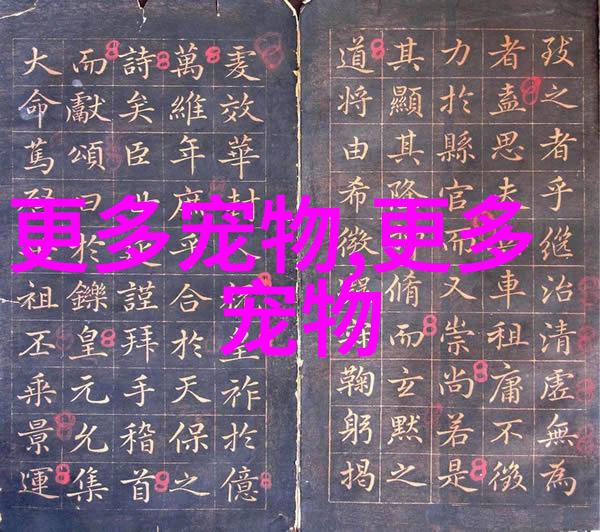 更多宠物,更多
宠物
之者乎继治清虛無為
者盍思夫車租庸不徵
力於縣官而又崇尚若是
其顯其降脩而玄默之
道將由希微鞠躬揭
效華封皇祚於億
萬維年庶乎合於天保之
詩矣臣謹拜手稽首
而獻頌曰於鑠皇元允集
大命篤祖丕乘景運